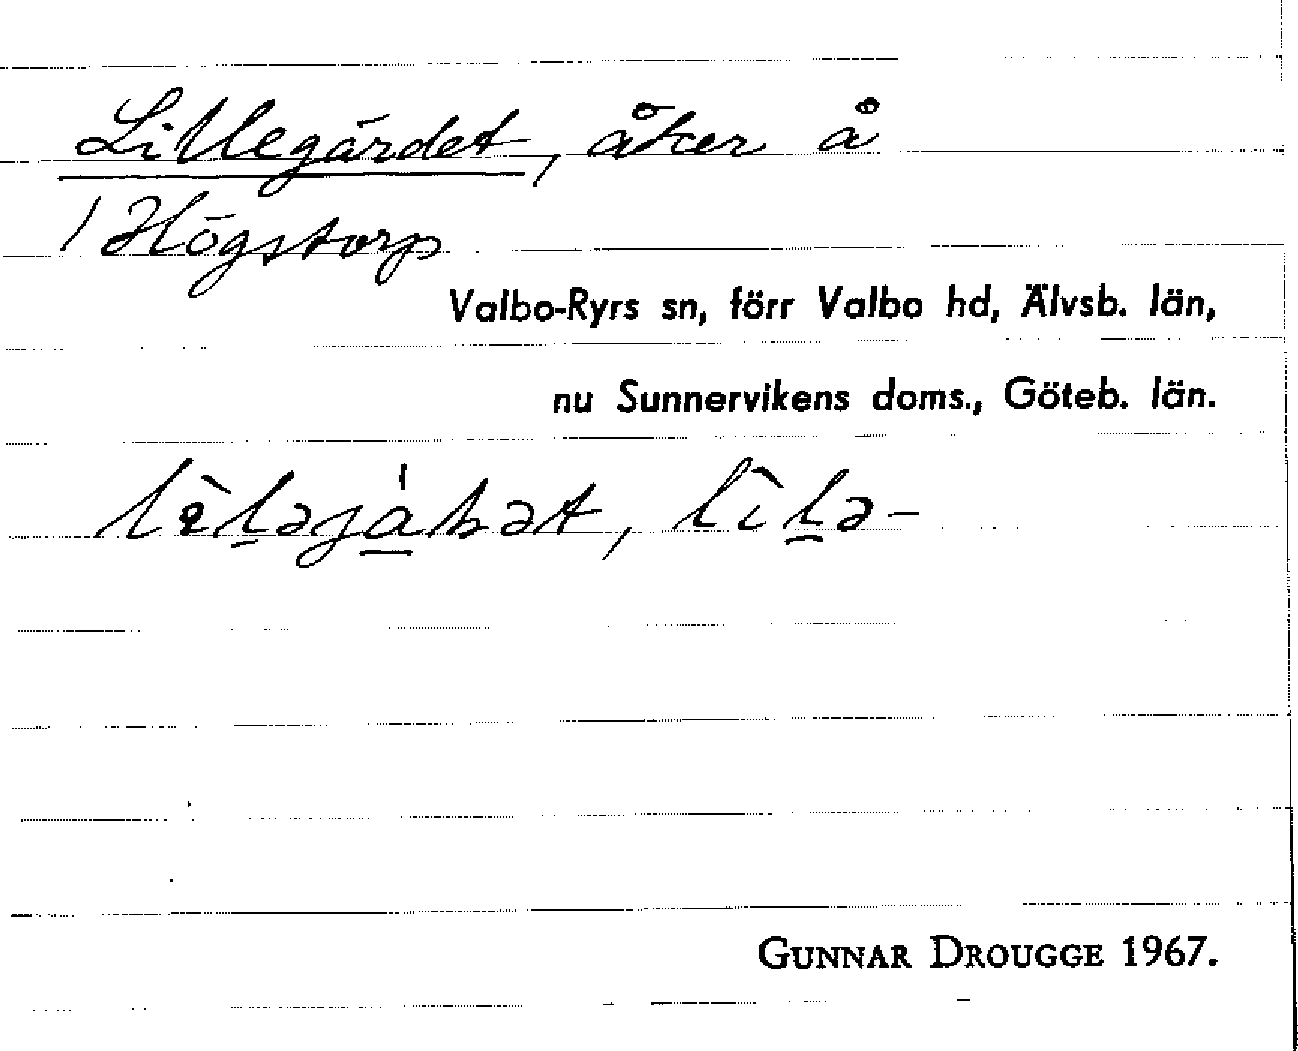 Lillegärdet, åker å
/ Högstorp
Valbo-Ryrs sn, förr Valbo hd, Älvsb. län,
nu Sunnervikens doms., Göteb. län.
GUNNAR DROUGGE 1967.